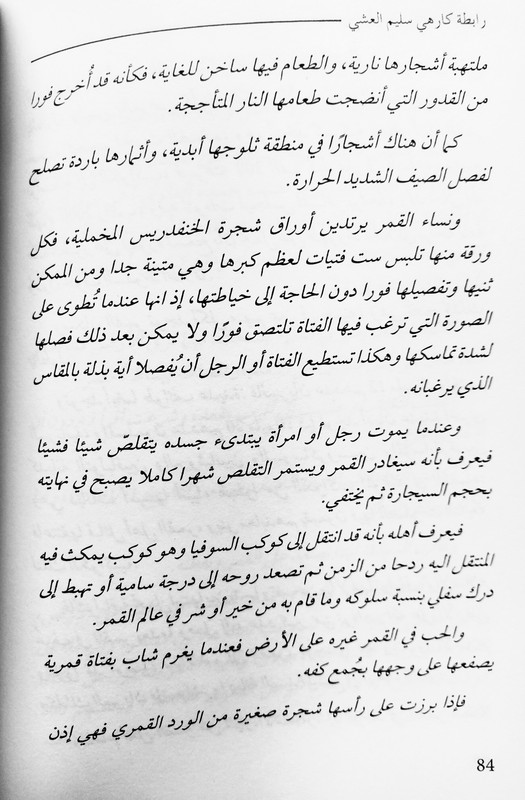 رابطة كارهي سليم العشي
ملتهبة أشجارها نارية، والطعام فيها ساخن للغاية، فكأنه قد أُخرج فورا
من القدور التي أنضجت طعامها النار المتأججة.
كما أن هناك أشجارًا في منطقة ثلوجها أبدية، وأثمارها باردة تصلح
لفصل الصيف الشديد الحرارة.
ونساء القمر يرتدين أوراق شجرة الخنفدريس المخملية، فكل
ورقة منها تلبس ست فتيات لعظم كبرها وهي متينة جدا ومن الممكن
ثنيها وتفصيلها فورا دون الحاجة إلى خياطتها، إذ انها عندما تُطوى على
الصورة التي ترغب فيها الفتاة تلتصق فورًا ولا يمكن بعد ذلك فصلها
لشدة تماسكها وهكذا تستطيع الفتاة أو الرجل أن يُفصلا أية بذلة بالمقاس
الذي يرغبانه.
وعندما يموت رجل أو امرأة يبتدىء جسده يتقلصّ شيئا فشيئا
فيعرف بأنه سيغادر القمر ويستمر التقلص شهرا كاملا يصبح في نهايته
بحجم السيجارة ثم يختفي.
فيعرف أهله بأنه قد انتقل إلى كوكب السوفيا وهو كوكب يمكث فيه
المنتقل اليه ردحا من الزمن ثم تصعد روحه إلى درجة سامية أو تهبط إلى
درك سفلي بنسبة سلوكه وما قام به من خير أو شر في عالم القمر.
والحب في القمر غيره على الأرض فعندما يغرم شاب بفتاة قمرية
يصفعها على وجهها بجُمع كفه.
فإذا برزت على رأسها شجرة صغيرة من الورد القمري فهي إذن
84